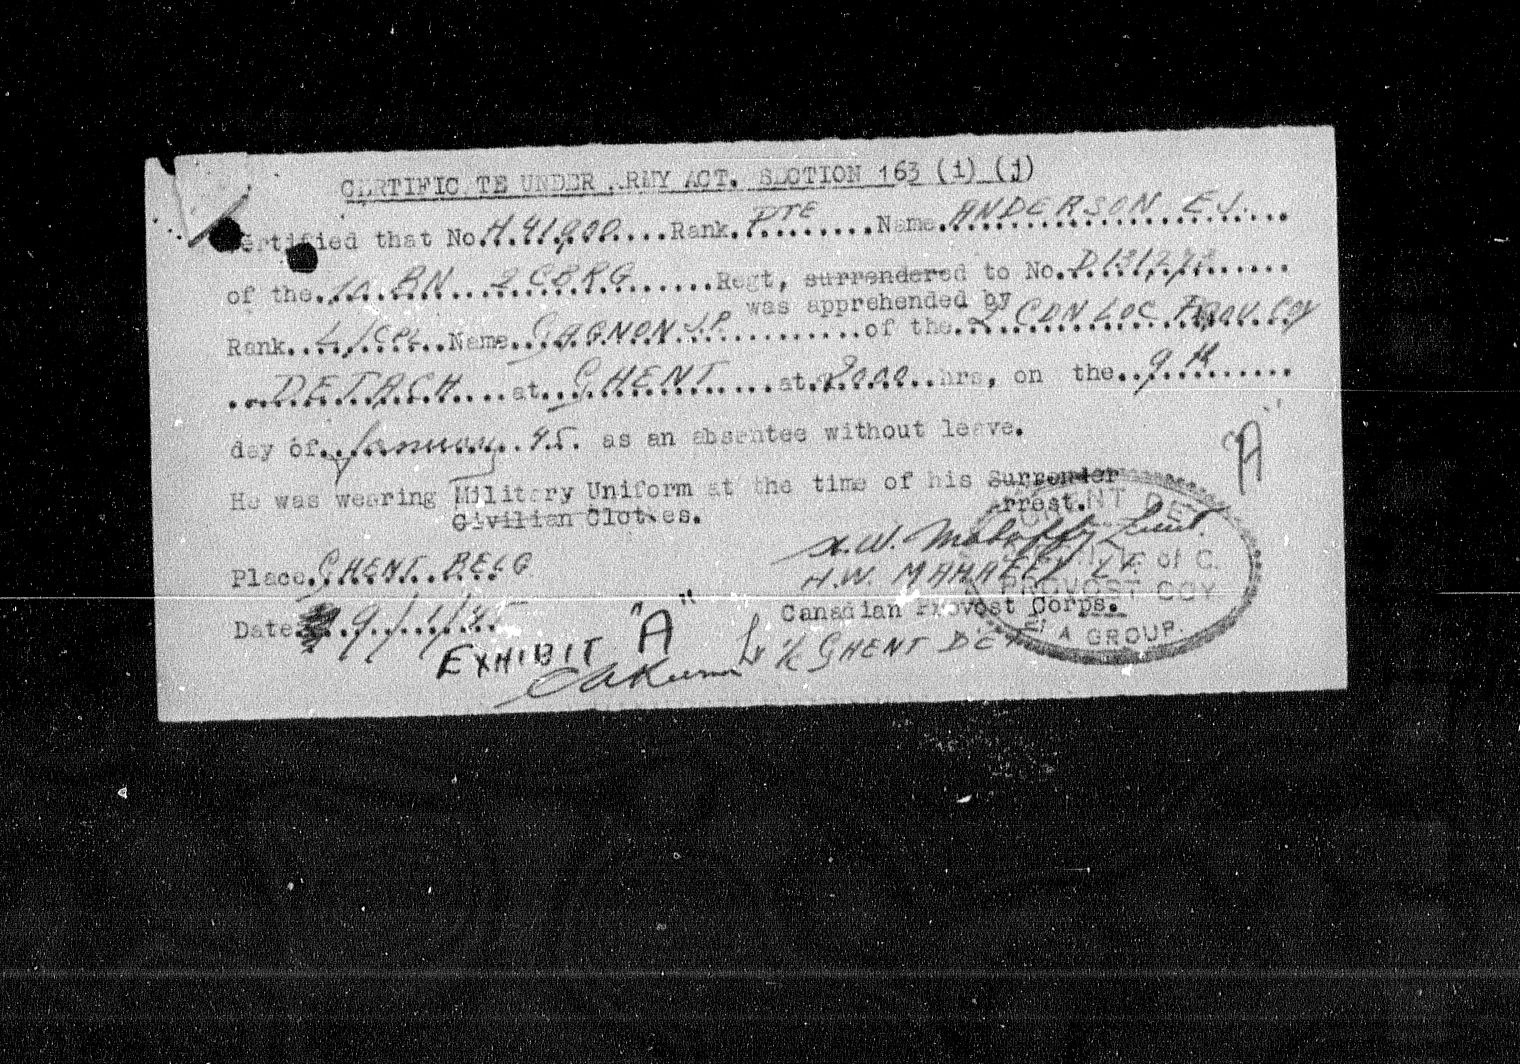 CERTIFIC TE UNDER .RMY ACT. SECTION 163 (i) (j)
ertified that No. H.41900 Rank. PTE Name. ANDERSON E.J.
of the. 10 BN 2 CBRG Regt, surrendered to No. D131293
was apprehended by
Rank. L/CPL Name. GAGNON J.P. of the. 2 CDN LOC PROV. COY
DETACH at. GHENT at. 2000 hrs, on the. 9
day of. January 45. as an absentee without leave.
He was wearing Military Uniform at the time of his Surrender
Civilian Clothes. Arrest.
"A"
Place. GHENT. BELG
H.W. Lieut.
H.W. LT
Canadian Provost Corps.
Date. 9/1/45
EXHIBIT "A"
I/C GHENT DET
GHENT DET
L of C.
PROVOST COY
A GROUP.